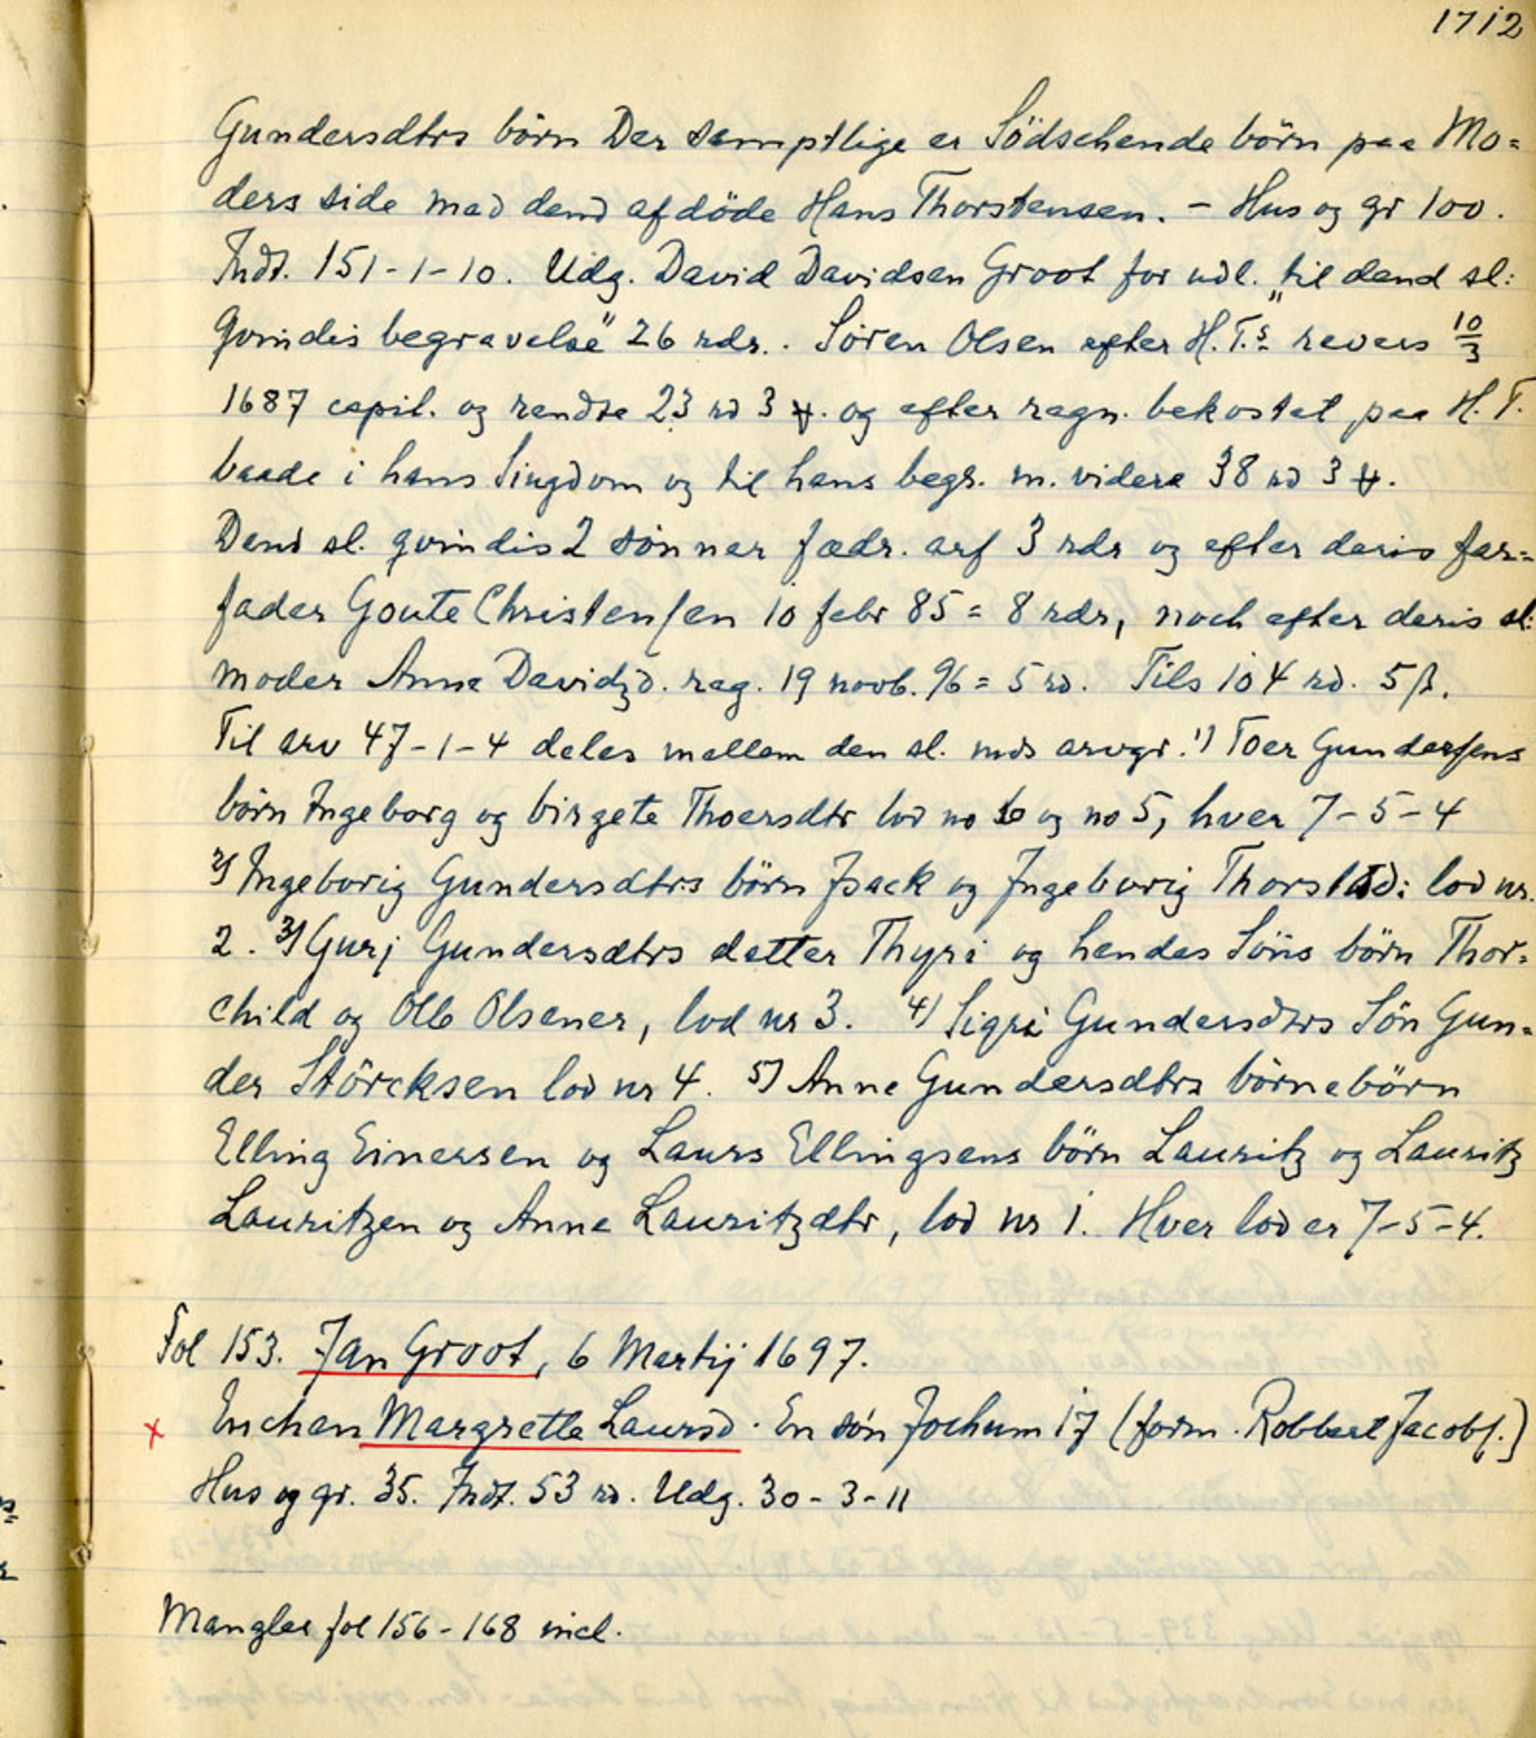 1712
Gundersdtrs börn Der samptlige er Södschende börn paa Mo=
ders side med dend afdöde Hans Thorstensen. - Hus og gr 100.
Indt. 151-1-10. Udg. David Davidsen Groot for udl. "til dend sl:
qvindis begravelse" 26 rdr.. Sören Olsen efter H.T.s revers 10/3
1687 capit. og rendte 23 rd 3 og efter regn. bekostet paa H.T.
baade i hans Siugdom og til hans begr. m. videre 38 rd 3
Dend sl. qvindis 2 sönner fædr. arf 3 rdr og efter deris far=
fader Goute Christensen 10 febr 85 = 8 rdr, noch efter deris sl:
moder Anne Davidzd. reg. 19 novb. 96 = 5 rd. Tils 104 rd. 5 ß.
Til arv 47-1-4 deles mellem den sl. mds arvgr. 1) Toer Gundersens
börn Ingeborg og birgete Thoersdtr lod no 6 og no 5, hver 7-5-4
2) Ingeborig Gundersdtrs börn Isack og Ingeborig Thorstd: lod nr.
2. 3) Gurj Gundersdtrs detter Thyri og hendes Söns börn Thor=
child og Olle Olsener, lod nr 3. 4) Sigri Gundersdtrs Sön Gun=
der Störcksen lod nr 4. 5) Anne Gundersdtrs börnebörn
Elling Einersen og Laurs Ellingsens börn Lauritz og Lauritz
Lauritzen og Anne Lauritzdtr, lod nr 1. Hver lod er 7-5-4.
Fol 153. Jan Groot, 6 Martij 1697.
x Enchen Margrette Laursd. En sön Jochum 17 (form. Robbert Jacobs.)
Hus og gr. 35. Indt. 53 rd. Udg. 30-3-11
Mangler fol 156-168 incl.